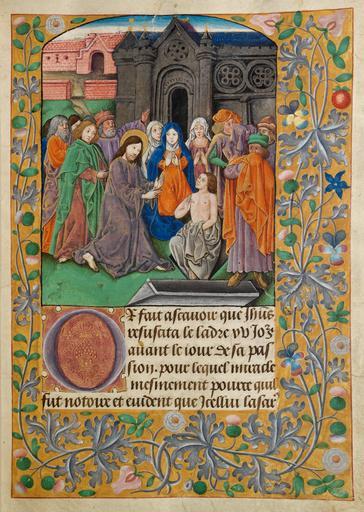 Or fait ascauoir que Ihus
resusita le ladre vv Joz
auant le iour de sa pas
sion. pour lequel miracle
mesmement pource quil
fut notoire et euident que Icellui lasar